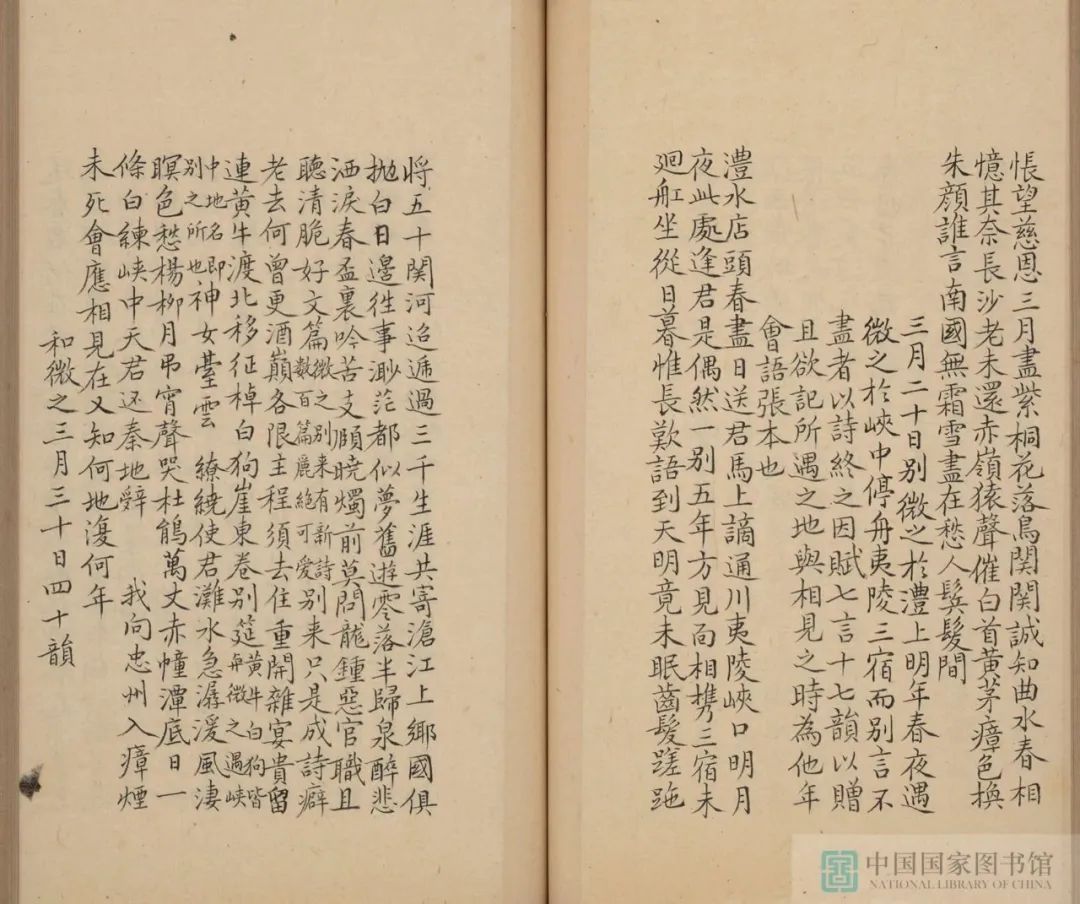 悵望慈恩三月盡紫桐花落鳥関関誠知曲水春相
憶其奈長沙老未還赤嶺猿聲催白首黃茅瘴色換
朱顏誰言南國無霜雪盡在愁人鬂髮間
三月二十日别微之於澧上明年春夜遇
微之於峽中停舟夷陵三宿而别言不
盡者以詩終之因賦七言十七韻以贈
且欲記所遇之地與相見之時為他年
會語張本也
澧水店頭春盡日送君馬上謫通川夷陵峽口明月
夜此處逢君是偶然一别五年方見面相携三宿未
廻舡坐從日暮惟長歎語到天明竟未眠齒髮蹉跎
將五十関河迢遞過三千生涯共寄滄江上鄉國俱
抛白日邊往事渺茫都似夢舊遊零落半歸泉醉悲
洒淚春盃裏吟苦支頤曉燭前莫問龍鍾惡官職且
聽清脆好文篇微之别来有新詩數百篇麗絕可愛别来只是成詩癖
老去何曾更酒巔各限主程須去住重開離宴貴留
連黃牛渡北移征棹白狗崖東卷别筵黃牛白狗皆峽
中地名即與微之遇别之所也神女臺雲繚繞使君灘水急潺湲風淒
暝色愁楊柳月弔宵聲哭杜鵑萬丈赤幢潭底日一
條白練峽中天君还秦地辤我向忠州入瘴煙
未死會應相見在又知何地漫何年
和微之三月三十日四十韻
中国国家图书馆
NATIONAL LIBRARY OF CHINA